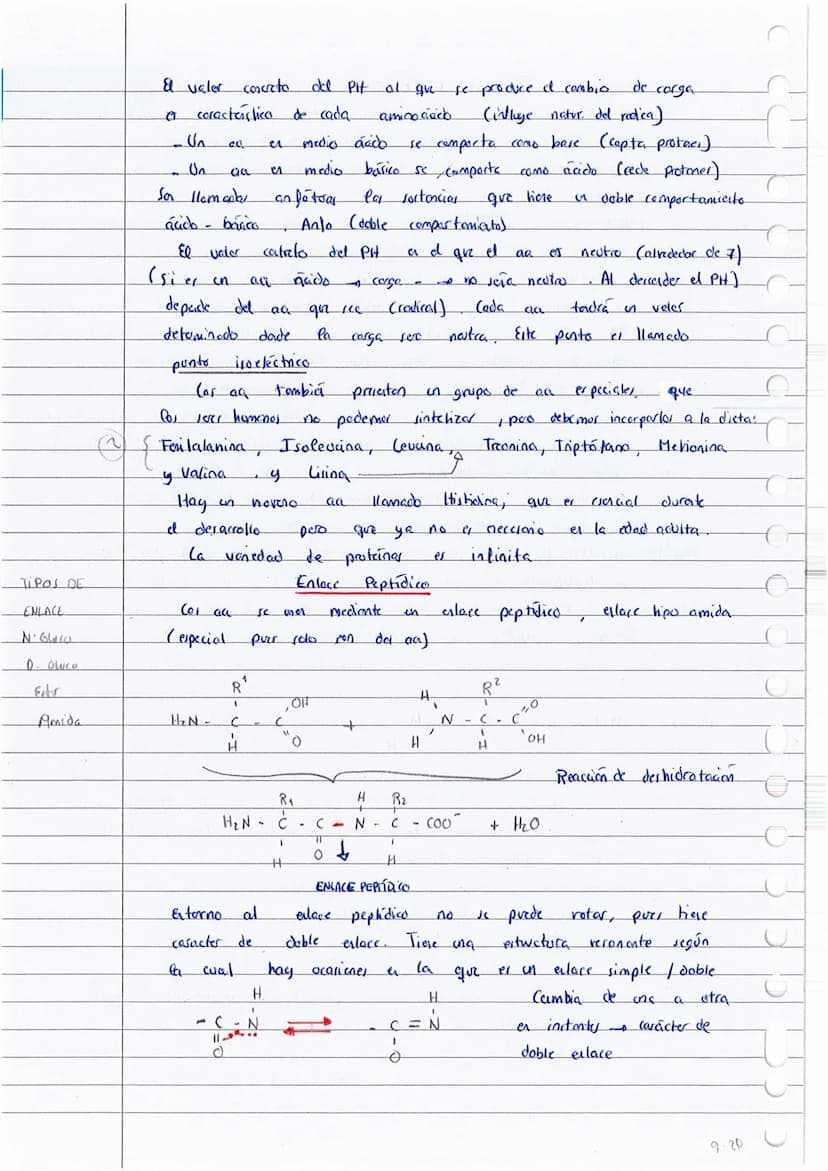 El valor concreto del PH al que se produce el cambio de carga
es característico de cada aminoácido (influye natur. del radical)
- Un aa en medio ácido se comporta como base (capta protones)
- Un aa en medio básico se comporta como ácido (cede protones)
Son llamadas anfóteras las sustancias que tiene un doble comportamiento
ácido - básico. Anfo (doble comportamiento)
El valor del PH es el que el aa es neutro (alrededor de 7)
(Si es un aa ácido → carga - → no sería neutro. Al descender el PH)
depende del aa que sea (radical). Cada aa tendrá un valor
determinado donde la carga será neutra. Este punto es llamado
punto isoeléctrico
Los aa también presentan un grupo de aa especiales, que
los seres humanos no podemos sintetizar, pero debemos incorporarlos a la dieta:
Fenilalanina, Isoleucina, Leucina, Treonina, Triptófano, Metionina
y Valina. y Lisina
Hay un noveno aa llamado Histidina, que es esencial durante
el desarrollo pero que ya no es necesario en la edad adulta.
La variedad de proteínas es infinita
TIPOS DE
ENLACE
N-Gluco
O-Gluco
Ester
Amida
Enlace Peptídico
Los aa se unen mediante un enlace peptídico, enlace tipo amida
(especial pues solo son dos aa)
R¹ OH H R² O
H₂N - C - C + N - C - C
H O H H OH
Reacción de deshidratación
R₁ H R₂
H₂N - C - C - N - C - COO⁻ + H₂O
H O ↓ H
ENLACE PEPTÍDICO
Entorno al enlace peptídico no se puede rotar, pues tiene
caracter de doble enlace. Tiene una estructura resonante según
la cual hay ocasiones en la que es un enlace simple / doble
H H
- C - N ⇄ - C = N
O O
Cambia de una a otra
en instantes → carácter de
doble enlace
9-20